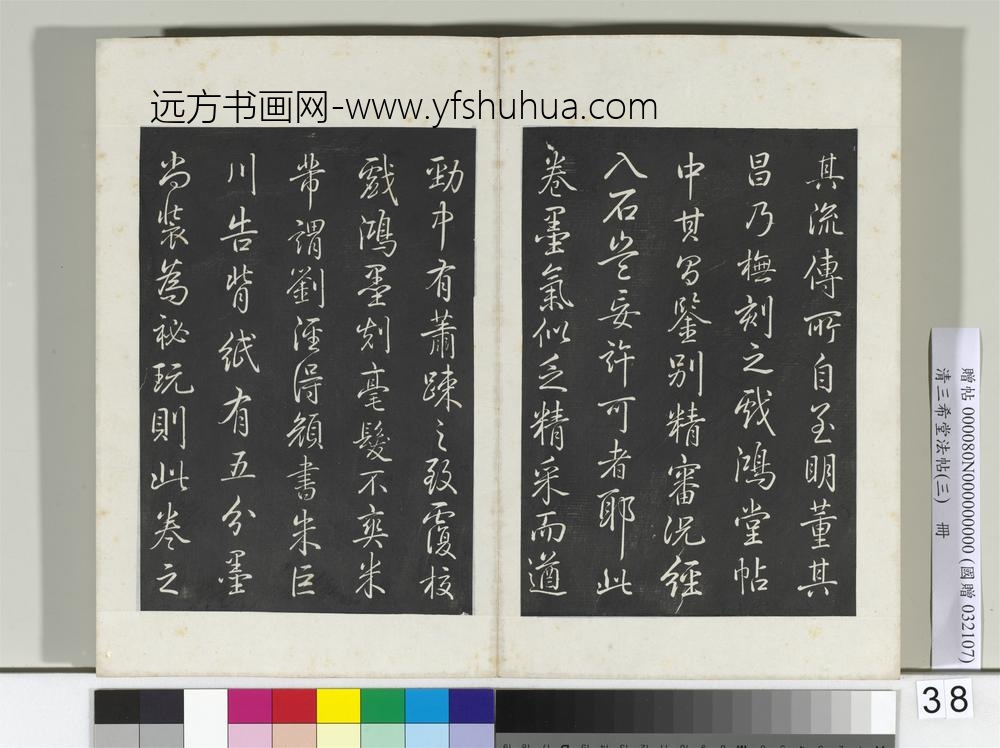 远方书画网-www.yfshuhua.com
其流傳所自至明董其
昌乃橅刻之戏鴻堂帖
中其留鑒别精審況經
入石豈妄許可者耶此
卷墨氣似乏精采而遒
勁中有蕭踈之致覆校
戲鴻墨刻毫髮不爽米
芾謂劉涇得顏書朱巨
川告背紙有五分墨
尚裝為祕玩則此卷之
贈帖 000080N000000000 (國贈 032107)
清三希堂法帖(三) 冊
38